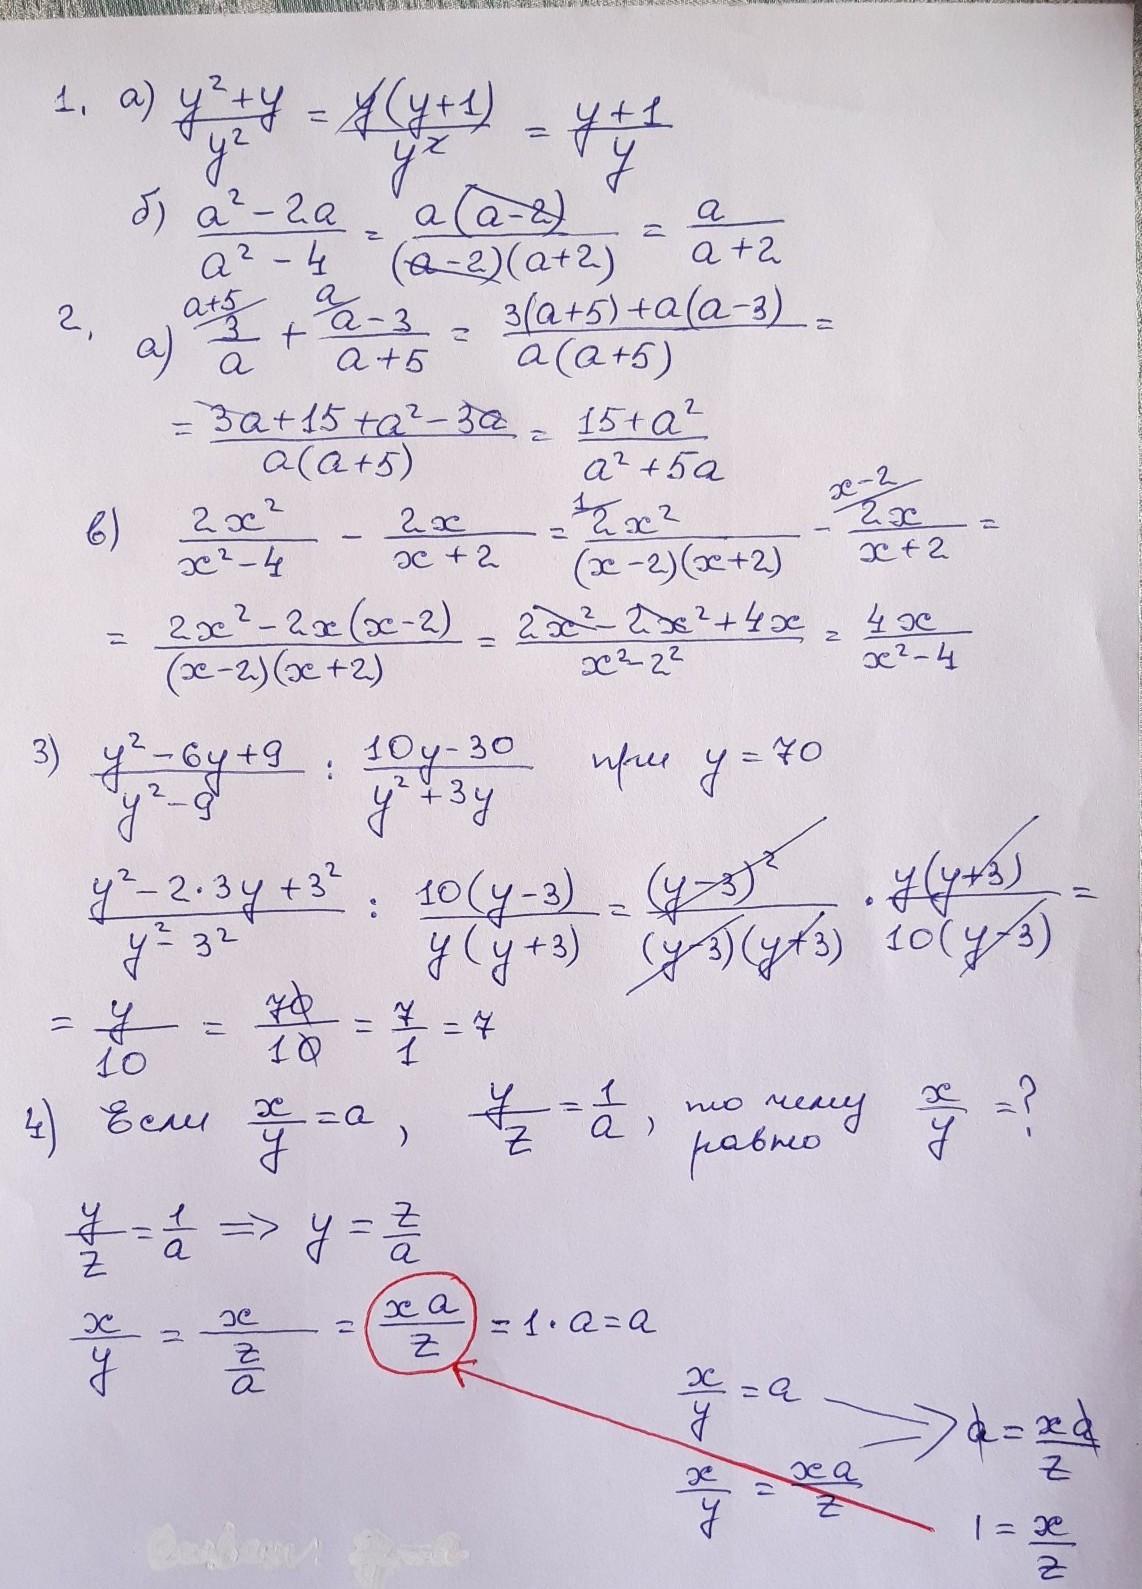 1. а) (y²+y)/y² = y(y+1)/y² = (y+1)/y
б) (a²-2a)/(a²-4) = a(a-2)/((a-2)(a+2)) = a/(a+2)
2. а) a+5/ 3/a + a/ (a-3)/(a+5) = (3(a+5)+a(a-3))/(a(a+5)) =
= (3a+15+a²-3a)/(a(a+5)) = (15+a²)/(a²+5a)
в) 2x²/(x²-4) - 2x/(x+2) = 1/ 2x²/((x-2)(x+2)) - x-2/ 2x/(x+2) =
= (2x²-2x(x-2))/((x-2)(x+2)) = (2x²-2x²+4x)/(x²-2²) = 4x/(x²-4)
3) (y²-6y+9)/(y²-9) : (10y-30)/(y²+3y) при y=70
(y²-2·3y+3²)/(y²-3²) : 10(y-3)/(y(y+3)) = (y-3)²/((y-3)(y+3)) · y(y+3)/(10(y-3)) =
= y/10 = 70/10 = 7/1 = 7
4) Если x/y = a, y/z = 1/a, то чему равно x/y = ?
y/z = 1/a => y = z/a
x/y = x/(z/a) = xa/z = 1·a = a
x/y = a
a = xa/z
x/y = xa/z
1 = x/z